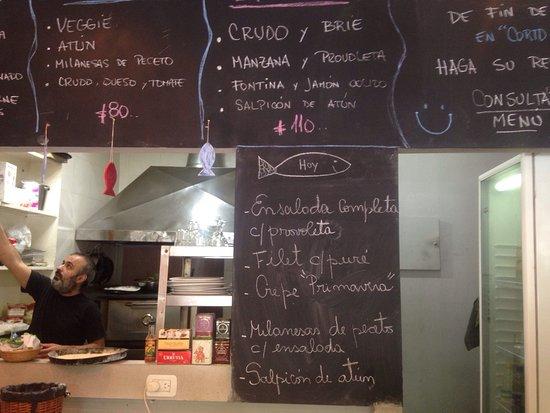 - VEGGIE
- ATÚN
- MILANESAS DE PECETO
- CRUDO, QUESO y TOMATE
$80..
. CRUDO y BRIE
. MANZANA y PROVOLETA
. FONTINA y JAMÓN COCIDO
. SALPICÓN DE ATÚN
$110..
DE FIN DE
EN "CORTO
HAGA SU RE
CONSULTA
MENU
Hoy
- Ensalada Completa
c/ provoleta
- Filet c/ puré
- Crepe "Primavera"
- Milanesas de peceto
c/ ensalada
- Salpicón de atún